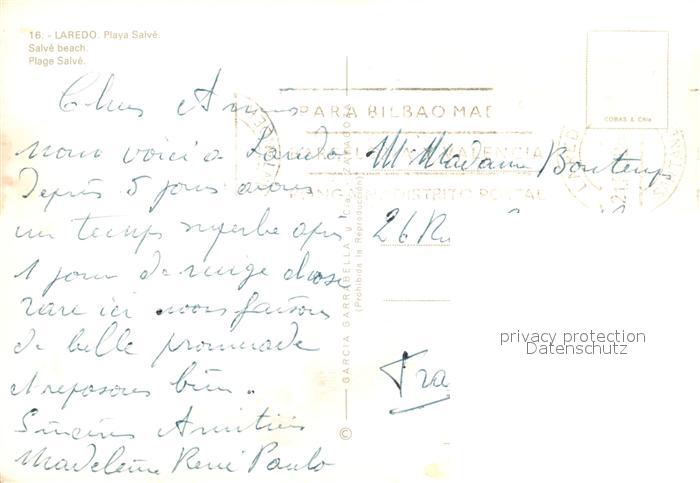 16. - LAREDO. Playa Salvé.
Salvé beach.
Plage Salvé.
Chers Amis
nous voici a Laredo
Depuis 5 jours avons
un temps superbe après
1 jour de neige chose
rare ici nous faisons
de belle promenade
et reposons bien.
Sincères Amitiés
Madeleine René Paulo
PARA BILBAO MAD
DISTRITO POSTAL
COBAS & Cñia
GARCIA GARRABELLA y Cía. ZARAGOZA
(Prohibida la Reproducción)
©
M Madame Bontemps
26 Ru
Fra
privacy protection
Datenschutz